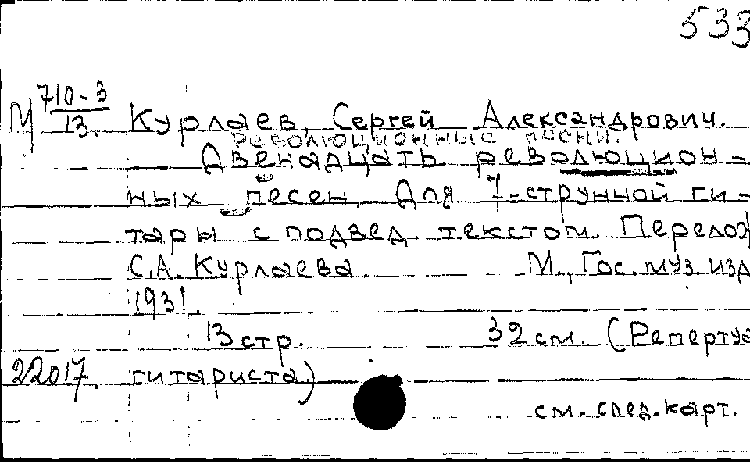 533
М 710-3/13 Курлаев, Сергей Александрович.
Революционные песни.
Двенадцать революцион-
ных песен. Для 7-струнной ги-
тары с подвед. текстом. Перелож
С.А. Курлаева. М., Гос. муз. изд
1931
13 стр. 32 см. (Репертуа
22017. гитариста)
см. след. карт.